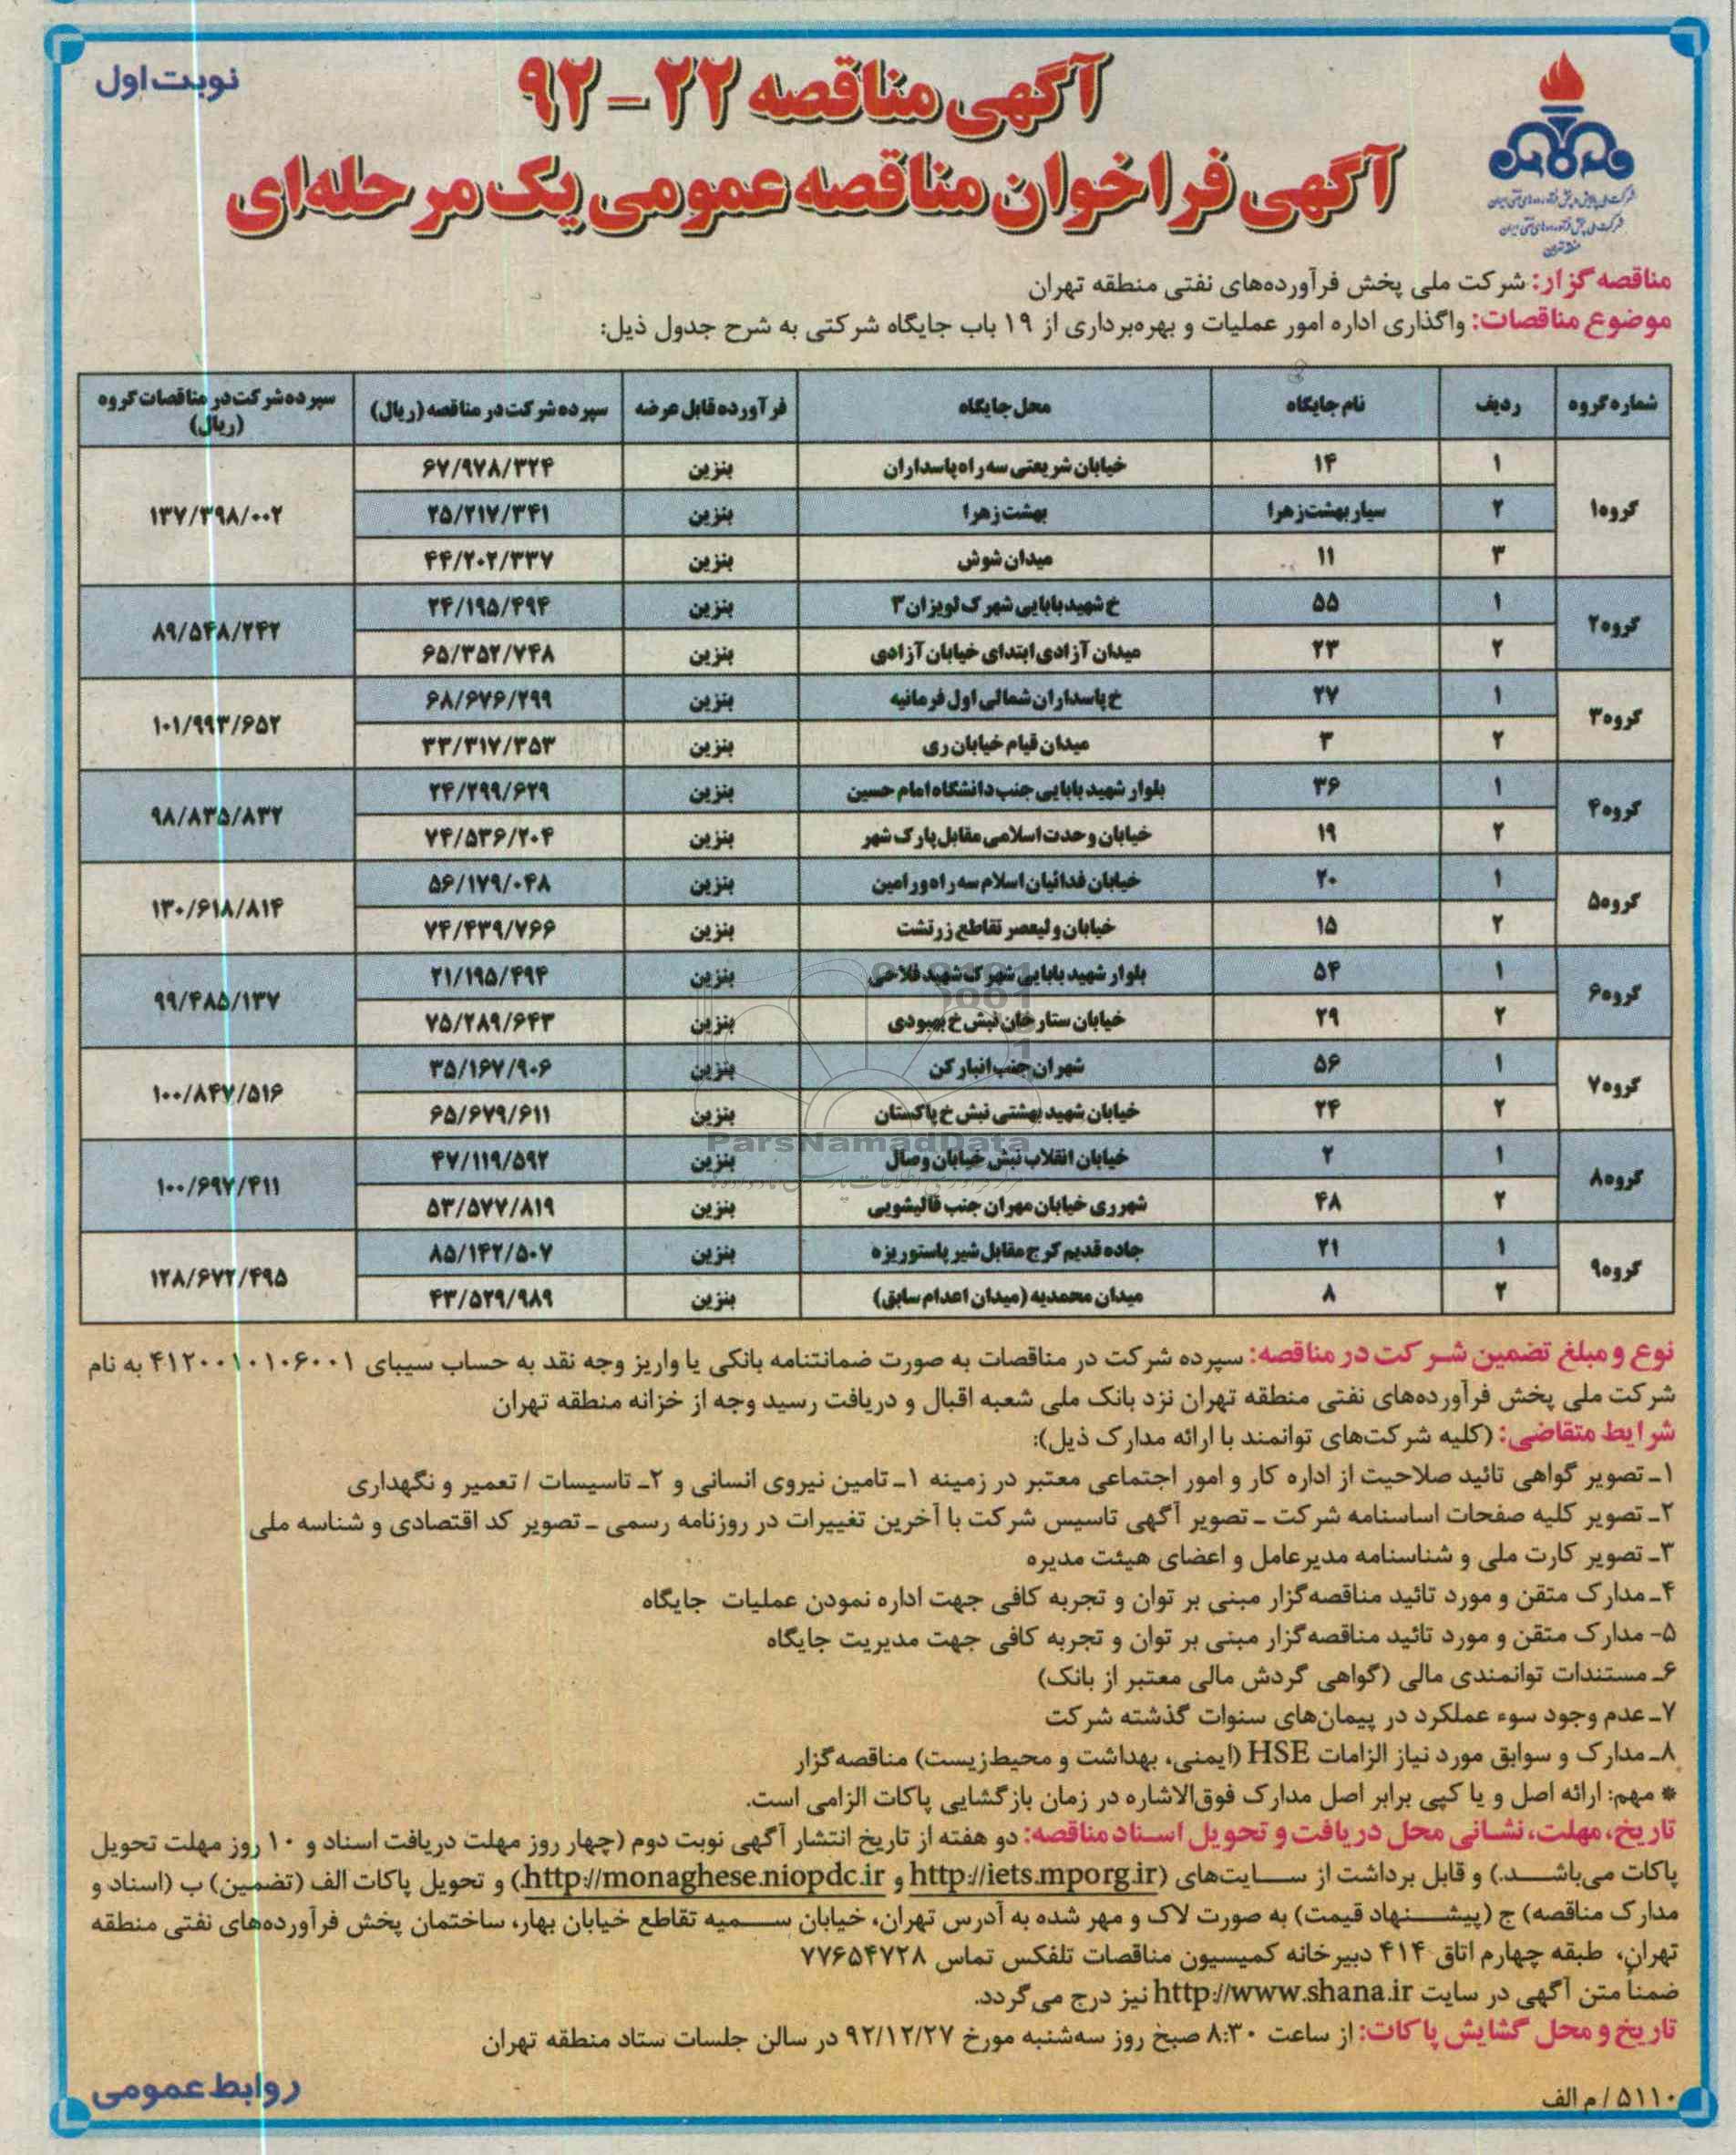 نوبت اول
آگهی مناقصه ۲۲-۹۲
آگهی فراخوان مناقصه عمومی یک مرحله‌ای
شرکت ملی پالایش و پخش فرآورده‌های نفتی ایران
شرکت ملی پخش فرآورده‌های نفتی ایران
منطقه تهران
مناقصه گزار: شرکت ملی پخش فرآورده‌های نفتی منطقه تهران
موضوع مناقصات: واگذاری اداره امور عملیات و بهره‌برداری از ۱۹ باب جایگاه شرکتی به شرح جدول ذیل:
شماره گروه ردیف نام جایگاه محل جایگاه فرآورده قابل عرضه سپرده شرکت در مناقصه (ریال) سپرده شرکت در مناقصات گروه (ریال)
گروه۱ ۱ ۱۴ خیابان شریعتی سه راه پاسداران بنزین ۶۷/۹۷۸/۳۲۴ ۱۳۷/۳۹۸/۰۰۲
۲ سیار بهشت زهرا بهشت زهرا بنزین ۲۵/۲۱۷/۳۴۱
۳ ۱۱ میدان شوش بنزین ۴۴/۲۰۲/۳۳۷
گروه۲ ۱ ۵۵ خ شهید بابایی شهرک لویزان ۳ بنزین ۲۴/۱۹۵/۴۹۴ ۸۹/۵۴۸/۲۴۲
۲ ۲۳ میدان آزادی ابتدای خیابان آزادی بنزین ۶۵/۳۵۲/۷۴۸
گروه۳ ۱ ۲۷ خ پاسداران شمالی اول فرمانیه بنزین ۶۸/۶۷۶/۲۹۹ ۱۰۱/۹۹۳/۶۵۲
۲ ۳ میدان قیام خیابان ری بنزین ۳۳/۳۱۷/۳۵۳
گروه۴ ۱ ۳۶ بلوار شهید بابایی جنب دانشگاه امام حسین بنزین ۲۴/۲۹۹/۶۲۹ ۹۸/۸۳۵/۸۳۲
۲ ۱۹ خیابان وحدت اسلامی مقابل پارک شهر بنزین ۷۴/۵۳۶/۲۰۴
گروه۵ ۱ ۲۰ خیابان فدائیان اسلام سه راه ورامین بنزین ۵۶/۱۷۹/۰۴۸ ۱۳۰/۶۱۸/۸۱۴
۲ ۱۵ خیابان ولیعصر تقاطع زرتشت بنزین ۷۴/۴۳۹/۷۶۶
گروه۶ ۱ ۵۴ بلوار شهید بابایی شهرک شهید فلاحی بنزین ۲۱/۱۹۵/۴۹۴ ۹۹/۴۸۵/۱۳۷
۲ ۲۹ خیابان ستارخان نبش خ بهبودی بنزین ۷۵/۲۸۹/۶۴۳
گروه۷ ۱ ۵۶ شهران جنب انبار کن بنزین ۳۵/۱۶۷/۹۰۶ ۱۰۰/۸۴۷/۵۱۶
۲ ۲۴ خیابان شهید بهشتی نبش خ پاکستان بنزین ۶۵/۶۷۹/۶۱۱
ParsNamadData
گروه۸ ۱ ۲ خیابان انقلاب نبش خیابان وصال بنزین ۴۷/۱۱۹/۵۹۲ ۱۰۰/۶۹۷/۴۱۱
۲ ۴۸ شهرری خیابان مهران جنب قالیشویی بنزین ۵۳/۵۷۷/۸۱۹
گروه۹ ۱ ۲۱ جاده قدیم کرج مقابل شیر پاستوریزه بنزین ۸۵/۱۴۲/۵۰۷ ۱۲۸/۶۷۲/۴۹۵
۲ ۸ میدان محمدیه (میدان اعدام سابق) بنزین ۴۳/۵۲۹/۹۸۹
نوع و مبلغ تضمین شرکت در مناقصه: سپرده شرکت در مناقصات به صورت ضمانتنامه بانکی یا واریز وجه نقد به حساب سیبای ۴۱۲۰۰۱۰۱۰۶۰۰۱ به نام
شرکت ملی پخش فرآورده‌های نفتی منطقه تهران نزد بانک ملی شعبه اقبال و دریافت رسید وجه از خزانه منطقه تهران
شرایط متقاضی: (کلیه شرکت‌های توانمند با ارائه مدارک ذیل):
۱ـ تصویر گواهی تائید صلاحیت از اداره کار و امور اجتماعی معتبر در زمینه ۱ـ تامین نیروی انسانی و ۲ـ تاسیسات / تعمیر و نگهداری
۲ـ تصویر کلیه صفحات اساسنامه شرکت ـ تصویر آگهی تاسیس شرکت با آخرین تغییرات در روزنامه رسمی ـ تصویر کد اقتصادی و شناسه ملی
۳ـ تصویر کارت ملی و شناسنامه مدیرعامل و اعضای هیئت مدیره
۴ـ مدارک متقن و مورد تائید مناقصه‌گزار مبنی بر توان و تجربه کافی جهت اداره نمودن عملیات جایگاه
۵- مدارک متقن و مورد تائید مناقصه‌گزار مبنی بر توان و تجربه کافی جهت مدیریت جایگاه
۶ـ مستندات توانمندی مالی (گواهی گردش مالی معتبر از بانک)
۷ـ عدم وجود سوء عملکرد در پیمان‌های سنوات گذشته شرکت
۸ـ مدارک و سوابق مورد نیاز الزامات HSE (ایمنی، بهداشت و محیط‌زیست) مناقصه‌گزار
* مهم: ارائه اصل و یا کپی برابر اصل مدارک فوق‌الاشاره در زمان بازگشایی پاکات الزامی است.
تاریخ، مهلت، نشانی محل دریافت و تحویل اسناد مناقصه: دو هفته از تاریخ انتشار آگهی نوبت دوم (چهار روز مهلت دریافت اسناد و ۱۰ روز مهلت تحویل
پاکات می‌باشد.) و قابل برداشت از سایت‌های (http://iets.mporg.ir و http://monaghese.niopdc.ir) و تحویل پاکات الف (تضمین) ب (اسناد و
مدارک مناقصه) ج (پیشنهاد قیمت) به صورت لاک و مهر شده به آدرس تهران، خیابان سمیه تقاطع خیابان بهار، ساختمان پخش فرآورده‌های نفتی منطقه
تهران، طبقه چهارم اتاق ۴۱۴ دبیرخانه کمیسیون مناقصات تلفکس تماس ۷۷۶۵۴۷۲۸
ضمناً متن آگهی در سایت http://www.shana.ir نیز درج می‌گردد.
تاریخ و محل گشایش پاکات: از ساعت ۸:۳۰ صبح روز سه‌شنبه مورخ ۹۲/۱۲/۲۷ در سالن جلسات ستاد منطقه تهران
روابط عمومی
۵۱۱۰ / م الف